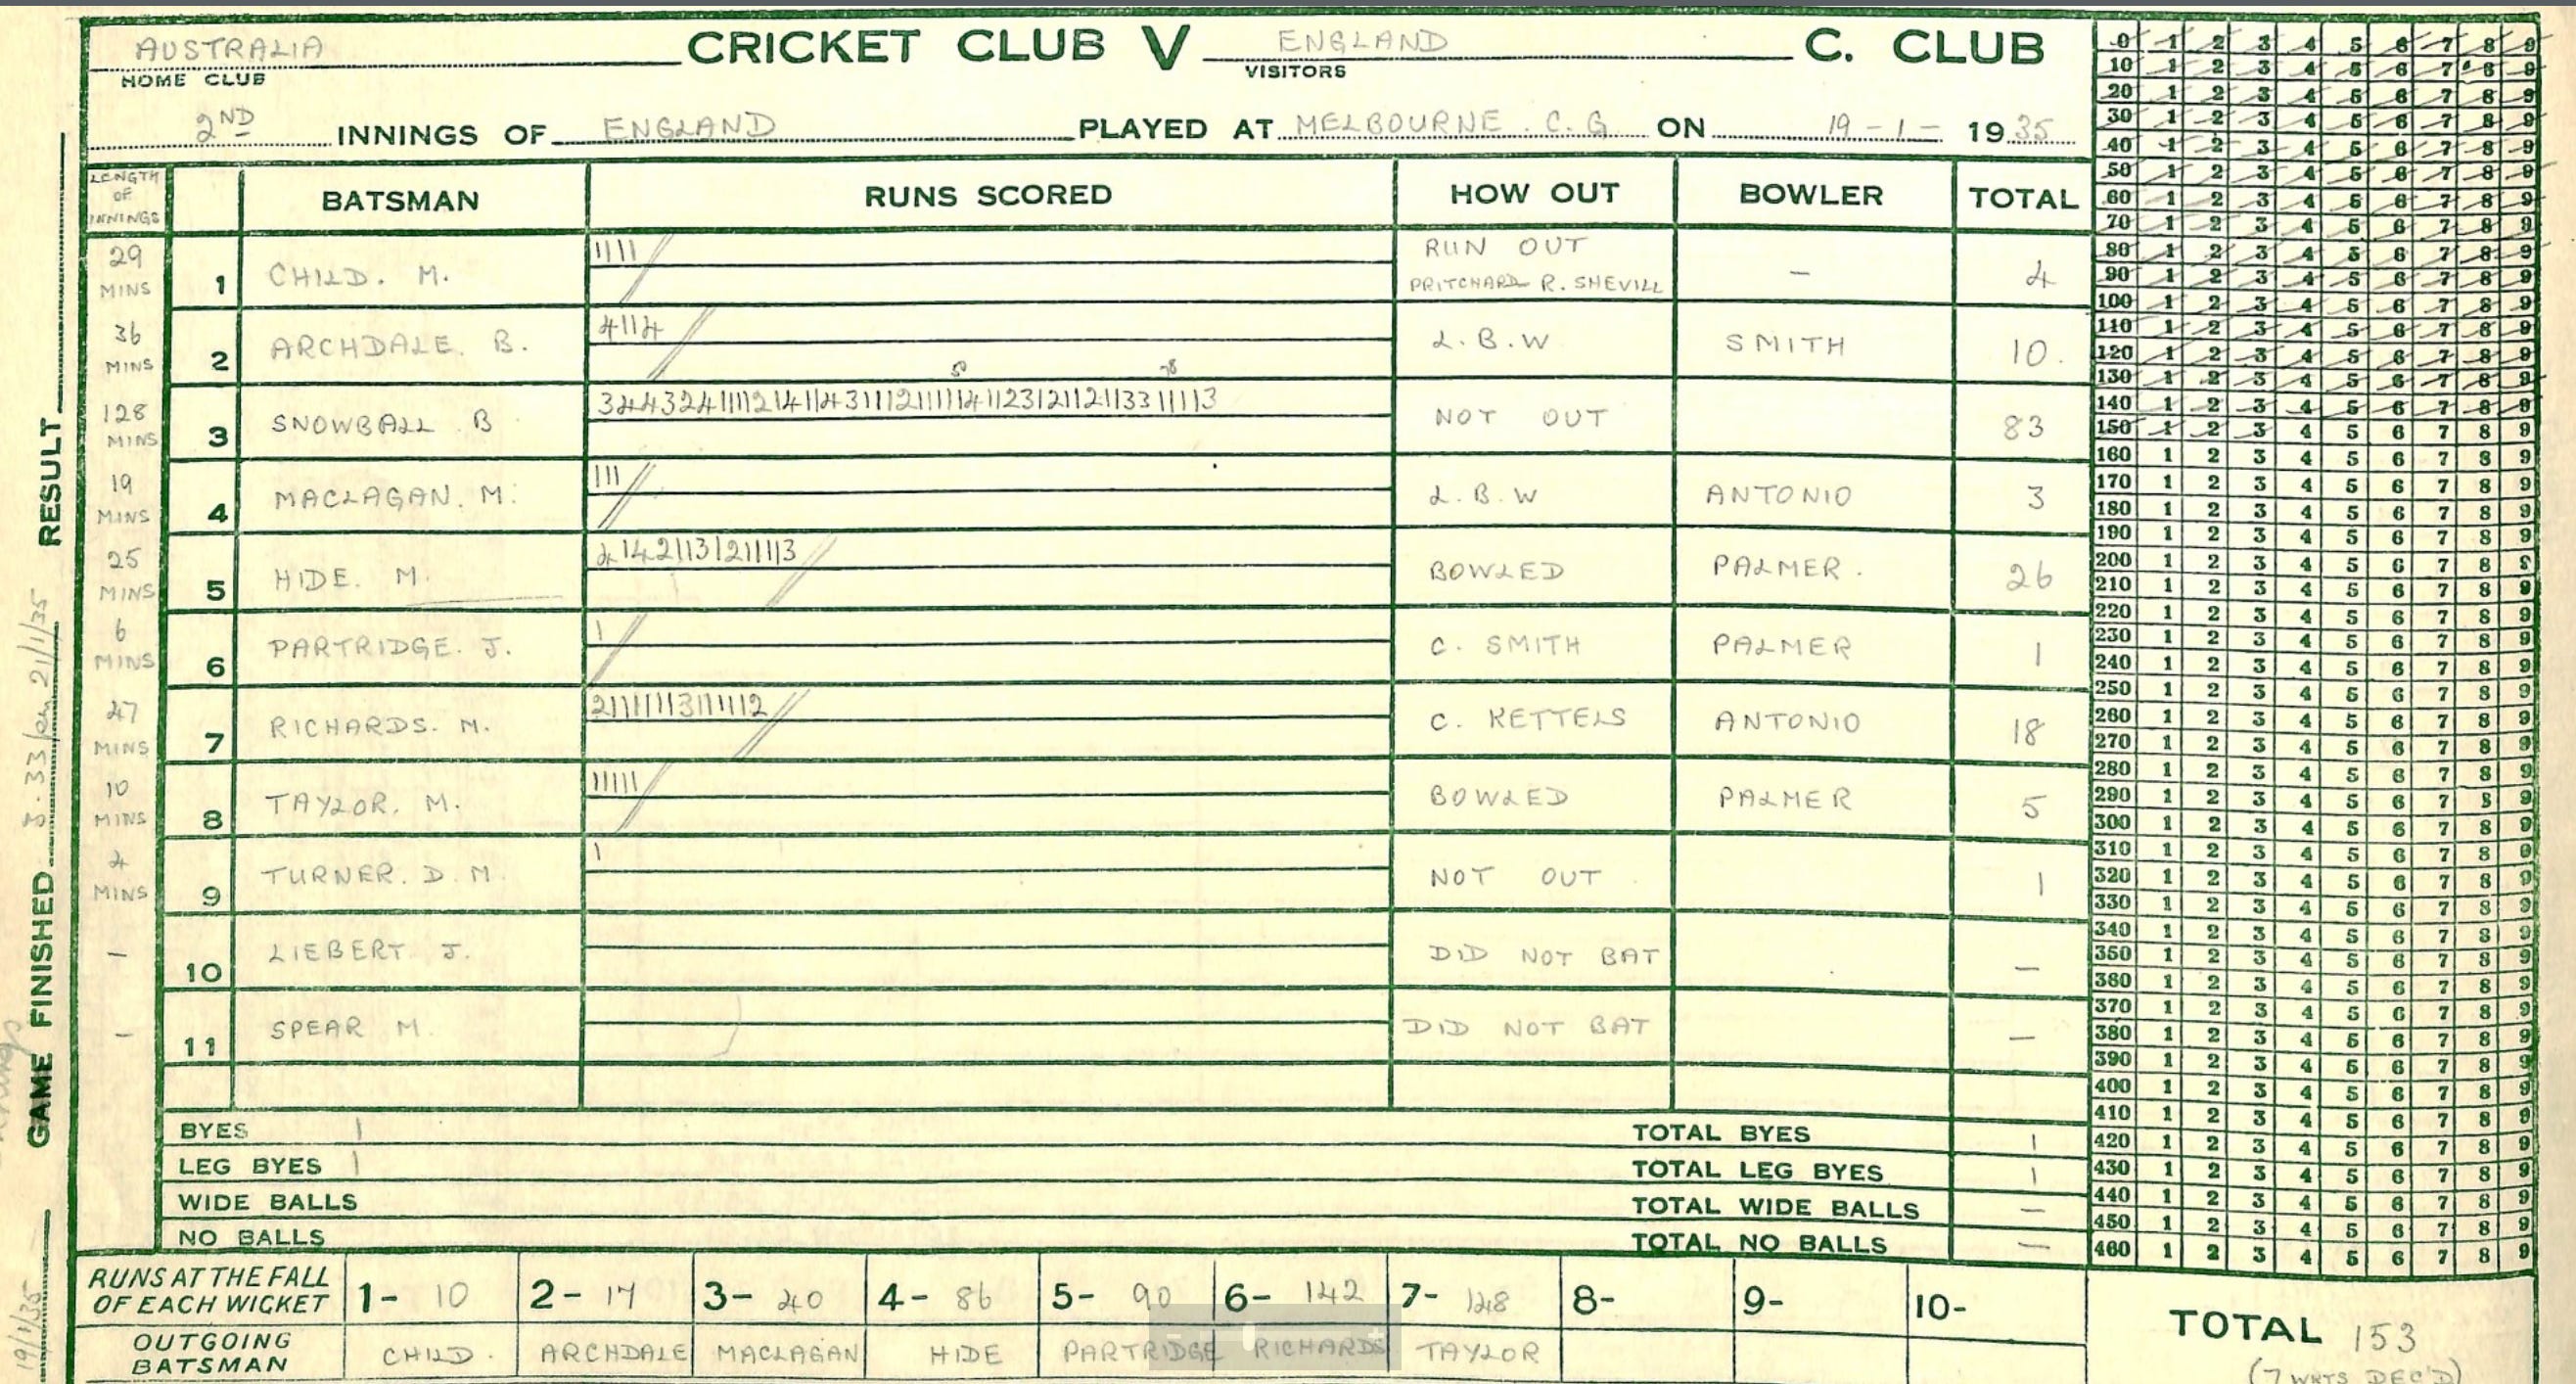 AUSTRALIA CRICKET CLUB V ENGLAND C. CLUB
HOME CLUB VISITORS
2ND INNINGS OF ENGLAND PLAYED AT MELBOURNE. C. G. ON 19-1-1935
LENGTH OF INNINGS BATSMAN RUNS SCORED HOW OUT BOWLER TOTAL
29 MINS 1 CHILD. M. 1111 RUN OUT PRITCHARD R. SHEVILL - 4
36 MINS 2 ARCHDALE. B. 4114 L.B.W SMITH 10.
128 MINS 3 SNOWBALL. B NOT OUT 83
19 MINS 4 MACLAGAN. M. 111 L.B.W ANTONIO 3
25 MINS 5 HIDE. M. 4142113121113 BOWLED PALMER. 26
6 MINS 6 PARTRIDGE. J. 1 C. SMITH PALMER 1
47 MINS 7 RICHARDS. M. C. KETTELS ANTONIO 18
10 MINS 8 TAYLOR. M. 11111 BOWLED PALMER 5
4 MINS 9 TURNER. D. M. 1 NOT OUT 1
- 10 LIEBERT J. DID NOT BAT —
- 11 SPEAR M. DID NOT BAT —
BYES 1 TOTAL BYES 1
LEG BYES 1 TOTAL LEG BYES 1
WIDE BALLS TOTAL WIDE BALLS —
NO BALLS TOTAL NO BALLS —
RUNS AT THE FALL OF EACH WICKET 1- 10 2- 17 3- 40 4- 86 5- 90 6- 142 7- 148 8- 9- 10-
OUTGOING BATSMAN CHILD. ARCHDALE MACLAGAN HIDE PARTRIDGE RICHARDS TAYLOR
TOTAL 153
(7 WKTS DEC'D)
0 1 2 3 4 5 6 7 8 9
10 1 2 3 4 5 6 7 8 9
20 1 2 3 4 5 6 7 8 9
30 1 2 3 4 5 6 7 8 9
40 1 2 3 4 5 6 7 8 9
50 1 2 3 4 5 6 7 8 9
60 1 2 3 4 5 6 7 8 9
70 1 2 3 4 5 6 7 8 9
80 1 2 3 4 5 6 7 8 9
90 1 2 3 4 5 6 7 8 9
100 1 2 3 4 5 6 7 8 9
110 1 2 3 4 5 6 7 8 9
120 1 2 3 4 5 6 7 8 9
130 1 2 3 4 5 6 7 8 9
140 1 2 3 4 5 6 7 8 9
150 1 2 3 4 5 6 7 8 9
160 1 2 3 4 5 6 7 8 9
170 1 2 3 4 5 6 7 8 9
180 1 2 3 4 5 6 7 8 9
190 1 2 3 4 5 6 7 8 9
200 1 2 3 4 5 6 7 8 9
210 1 2 3 4 5 6 7 8 9
220 1 2 3 4 5 6 7 8 9
230 1 2 3 4 5 6 7 8 9
240 1 2 3 4 5 6 7 8 9
250 1 2 3 4 5 6 7 8 9
260 1 2 3 4 5 6 7 8 9
270 1 2 3 4 5 6 7 8 9
280 1 2 3 4 5 6 7 8 9
290 1 2 3 4 5 6 7 8 9
300 1 2 3 4 5 6 7 8 9
310 1 2 3 4 5 6 7 8 9
320 1 2 3 4 5 6 7 8 9
330 1 2 3 4 5 6 7 8 9
340 1 2 3 4 5 6 7 8 9
350 1 2 3 4 5 6 7 8 9
360 1 2 3 4 5 6 7 8 9
370 1 2 3 4 5 6 7 8 9
380 1 2 3 4 5 6 7 8 9
390 1 2 3 4 5 6 7 8 9
400 1 2 3 4 5 6 7 8 9
410 1 2 3 4 5 6 7 8 9
420 1 2 3 4 5 6 7 8 9
430 1 2 3 4 5 6 7 8 9
440 1 2 3 4 5 6 7 8 9
450 1 2 3 4 5 6 7 8 9
460 1 2 3 4 5 6 7 8 9
GAME FINISHED 3.33 pm 21/1/35 RESULT
19/1/35